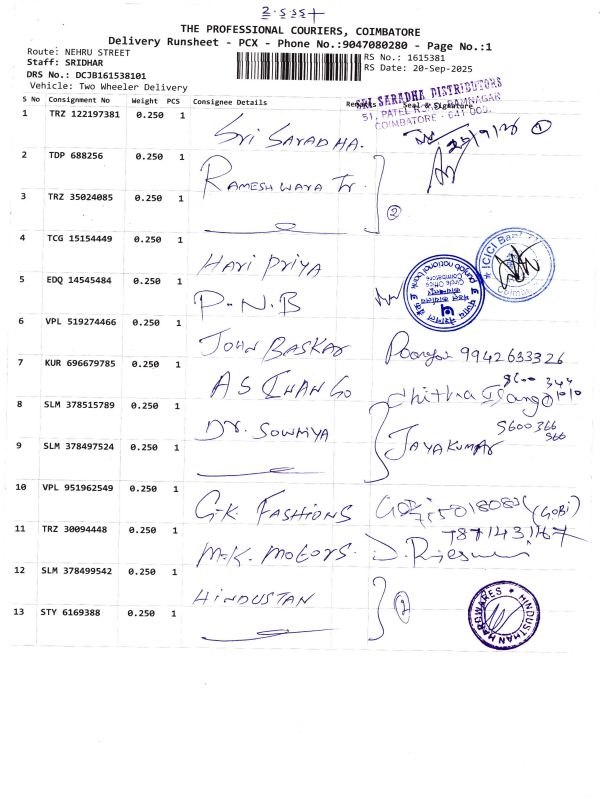 THE PROFESSIONAL COURIERS, COIMBATORE
Delivery Runsheet - PCX - Phone No.:9047080280 - Page No.:1
Route: NEHRU STREET
RS No.: 1615381
Staff: SRIDHAR
RS Date: 20-Sep-2025
DRS No.: DCJB161538101
Vehicle: Two Wheeler Delivery
S No Consignment No Weight PCS Consignee Details Seal & Signature
SRI SARADHA DISTRIBUTORS
51, PATEL ROAD, RAMNAGAR
COIMBATORE - 641 009.
1 TRZ 122197381 0.250 1 Sri Saradha. ①
2 TDP 688256 0.250 1 Rameshwara Tr.
3 TRZ 35024085 0.250 1 ②
4 TCG 15154449 0.250 1 Hari Priya ICICI Bank
5 EDQ 14545484 0.250 1 P.N.B punjab national bank Circle Office Coimbatore
6 VPL 519274466 0.250 1 JOHN BASKAR 9942633326
7 KUR 696679785 0.250 1 chithra
8 SLM 378515789 0.250 1 Dr. SOWMIYA JAYAKUMAR 9600366
9 SLM 378497524 0.250 1
10 VPL 951962549 0.250 1 G.K FASHIONS (GOBI)
11 TRZ 30094448 0.250 1 M.K. MOTORS.
12 SLM 378499542 0.250 1 HINDUSTAN ②
13 STY 6169388 0.250 1 HINDUSTHAN HARDWARES